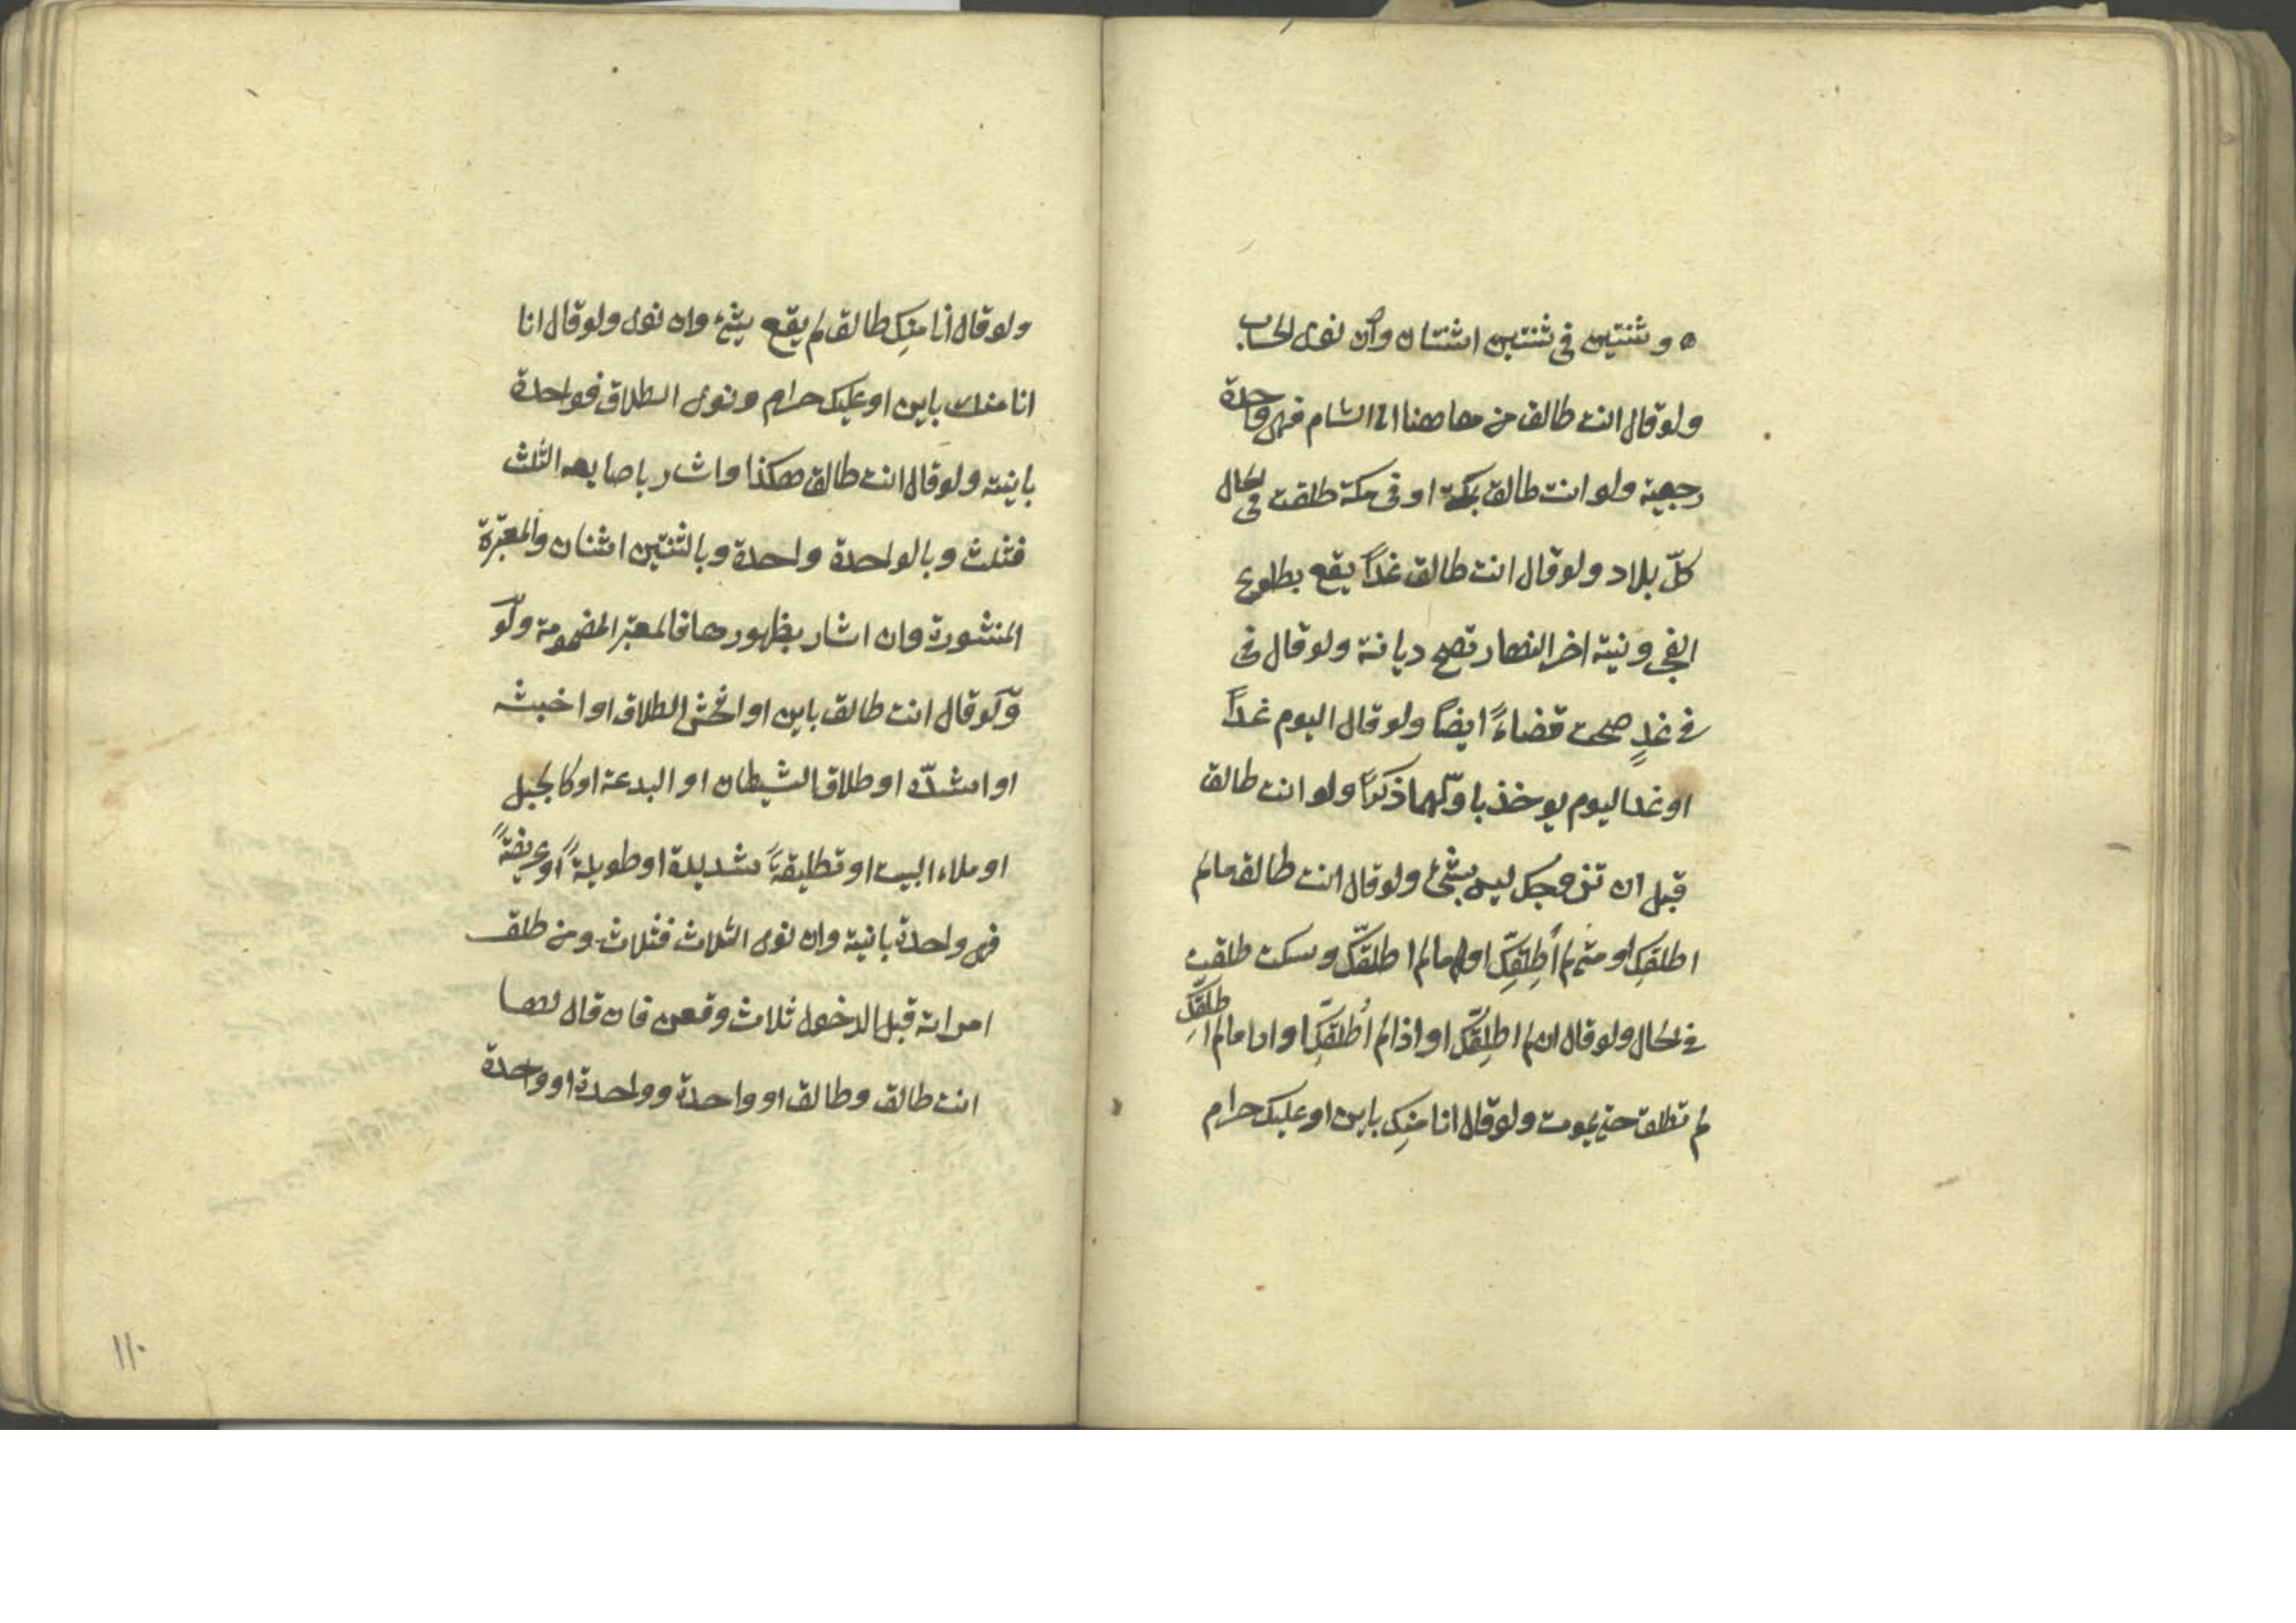 ه وشنتين فى شنتين اشنتان وان نوى الحساب
ولو قال انت طالق من هاهنا الى الشام فهى واحدة
رجعية ولو انت طالق بمكة او فى مكة طلقت فى الحال
كلّ بلاد ولو قال انت طالق غداً يقع بطلوع
الفجر ونية اخر النهار تصح ديانة ولو قال فى
فى غدٍ صحت قضاءً ايضاً ولو قال اليوم غداً
او غدا اليوم يوخذ باوّلهما ذكراً ولو انت طالق
قبل ان تزوجك ليس بشئ ولو قال انت طالق مالم
اطلقكِ او متى لم أطلِقكِّ او مالم اطلقكّ وسكت طلقت
فى الحال ولو قال ان لم اطلِقكّ او اذا لم أطلقكِّ او اذا مالم اطلِقكّ
لم تطلق حتى يموت ولو قال انا منكِ باين او عليك حرام
ولو قال أنا منكِ طالق لم يقع شئ وان نوى ولو قال انا
انا منك باين او عليك حرام ونوى الطلاق فواحدة
باينة ولو قال انت طالق هكذا واشار باصابعه الثلث
فثلث وبالواحدة واحدة وبالثنتين اثنان والمعتبرة
المنشورة وان اشار بظهورها فالمعتبر المضمومة ولو
ولو قال انت طالق باين او افحش الطلاق او اخبثه
او اشدّه او طلاق الشيطان او البدعة او كالجبل
او ملاء البيت او تطليقةً شديدة او طويلةً او عريضةً
فهى واحدة بانية وان نوى الثلاث فثلاث ومن طلق
امراته قبل الدخول ثلاث وقعن فان قال لها
انت طالق وطالق او واحدة وواحدة او واحدة
١١٠